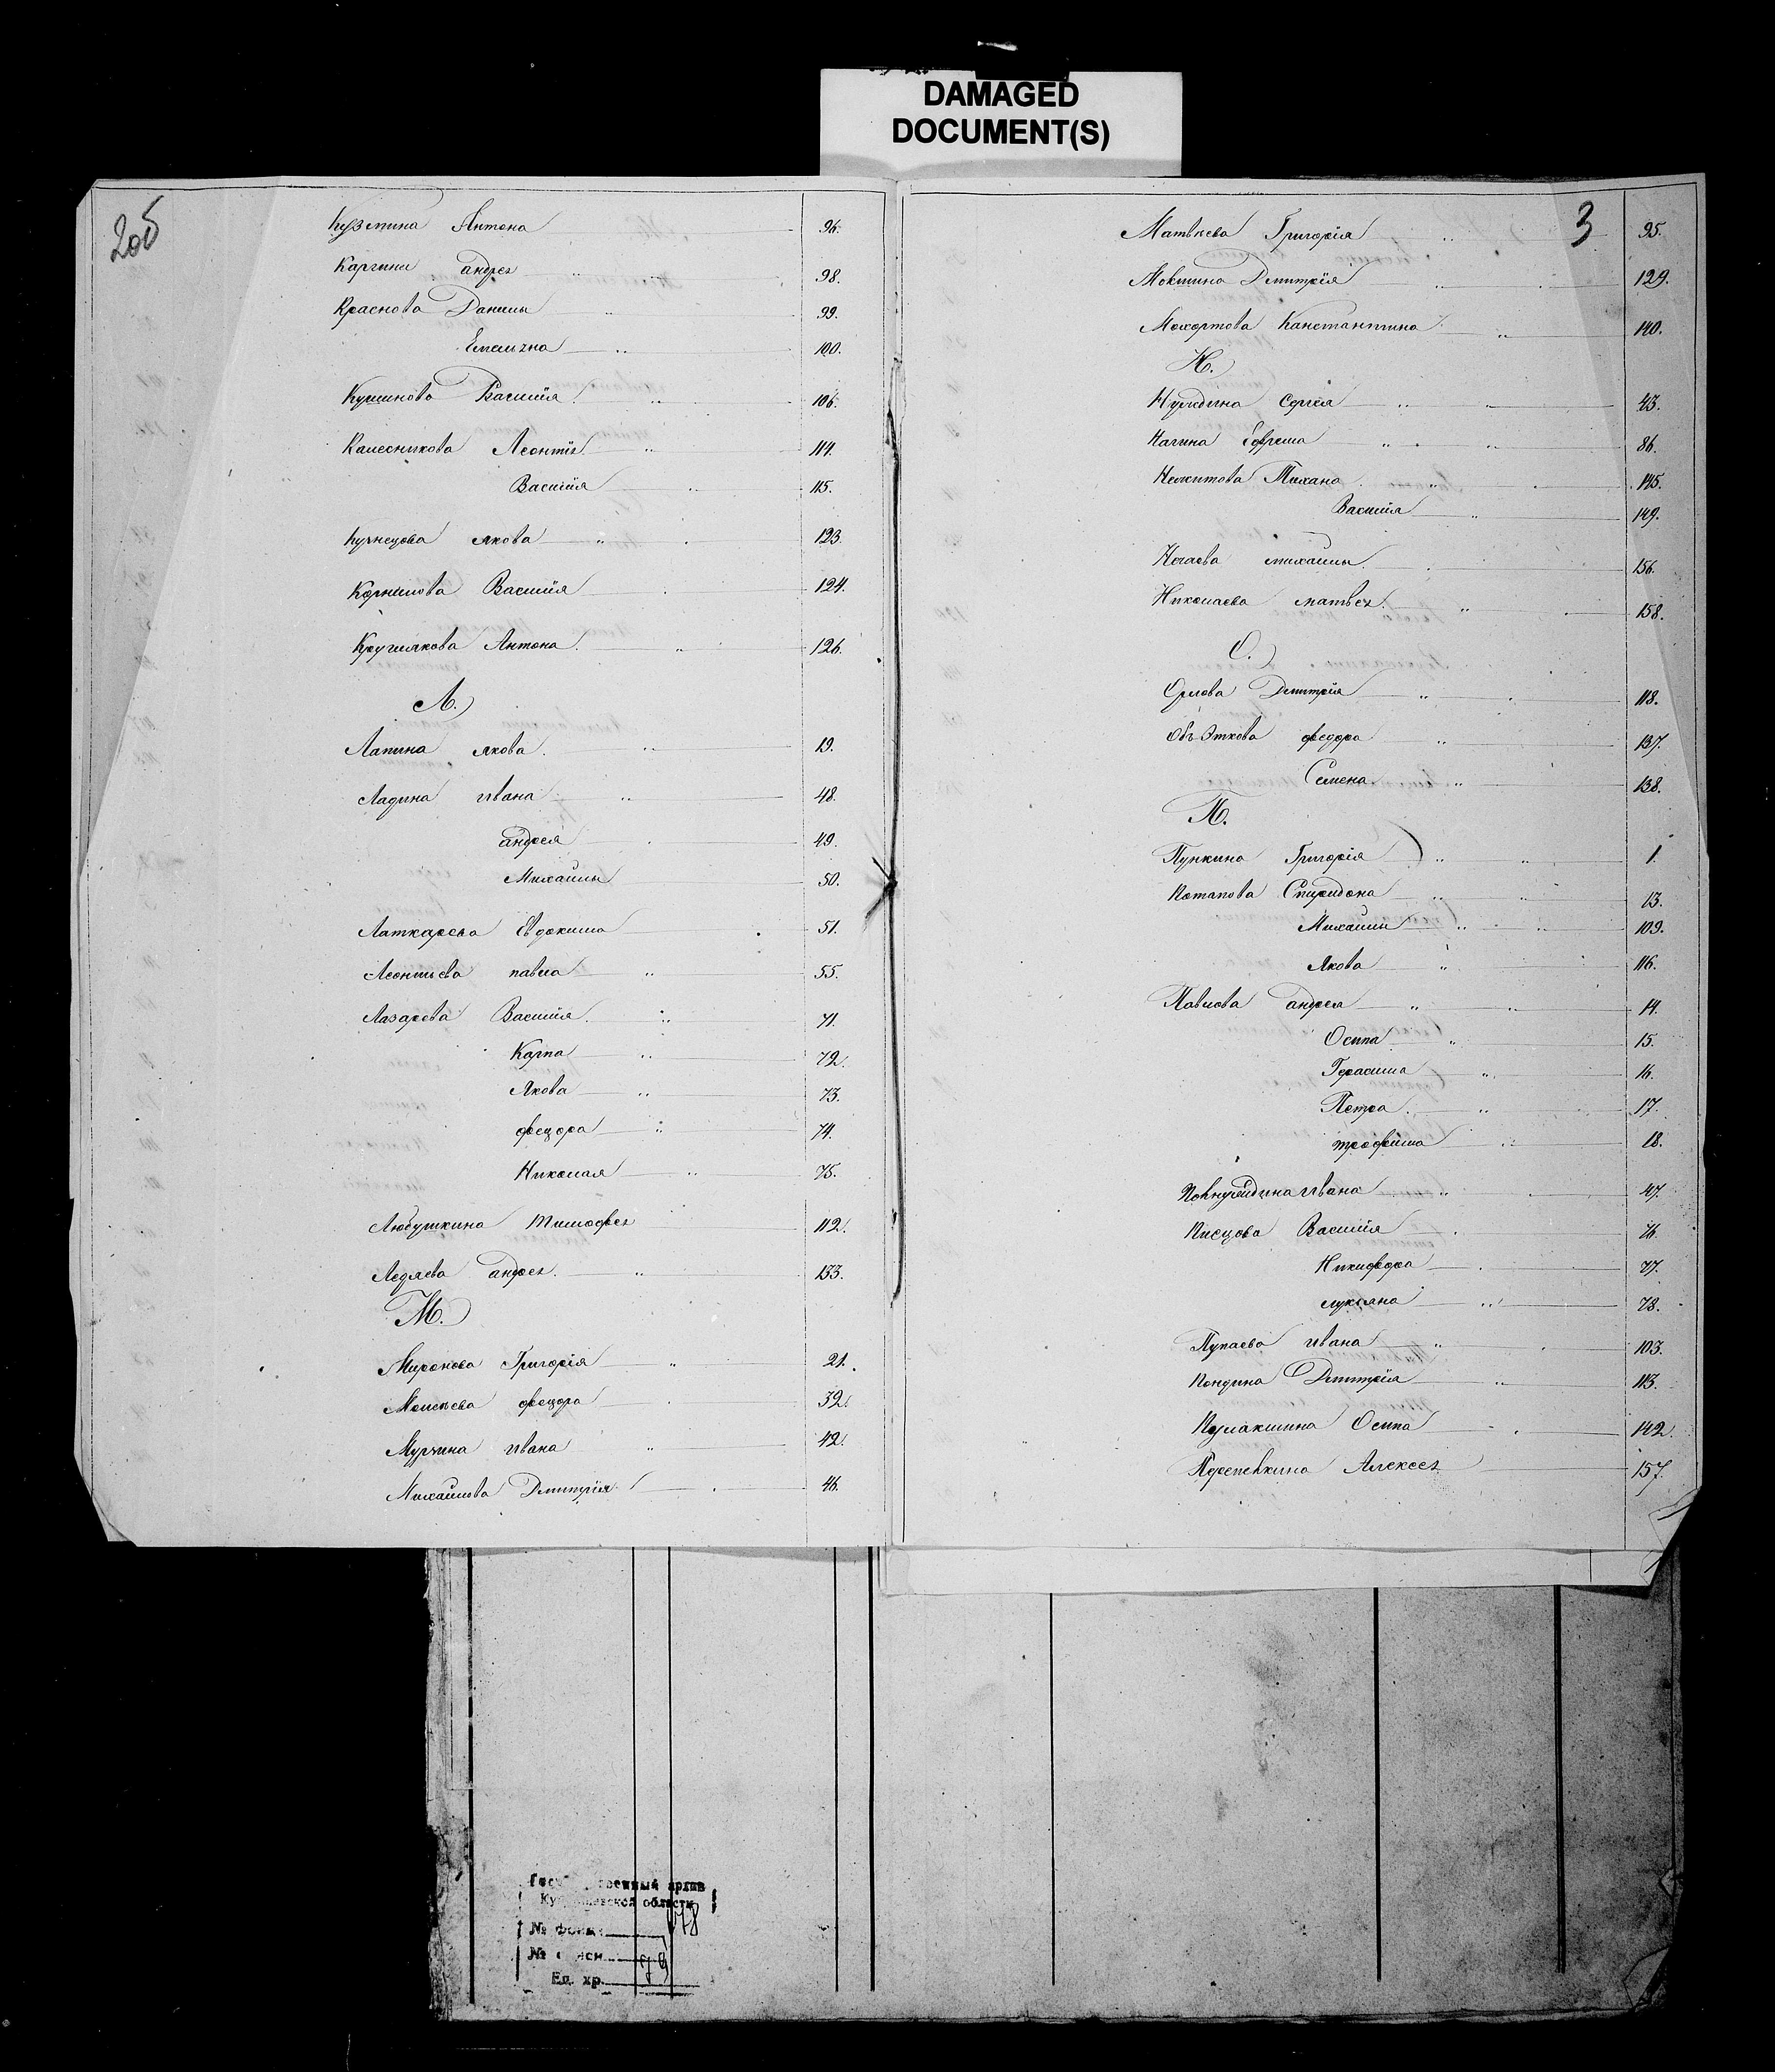 DAMAGED
DOCUMENT(S)
205
Кузмина Антона 96.
Каргина андрея 98.
Краснова Данилы 99.
100.
Василія 106.
Калесникова Леонтія 114.
Василія 115.
Кузнецова якова 123.
Корнилова Василія 124.
Круглякова Антона 126.
Л.
Лапина якова 19.
Ладина ивана 48.
андрея 49.
Михайлы 50.
Евдокима 51.
Леонтьева павла 55.
Лазарева Василія 71.
Карпа 72.
Якова 73.
федора 74.
Николая 75.
Любушкина Тимофея 112.
Ледяева андрея 133.
М.
Миронова Григорія 21.
федора 32.
Мурзина ивана 42.
Михайлова Дмитрія 46.
3
Матвеева Григорія 95.
Мокшина Дмитрія 129.
Мохортова Канстантина 140.
Н.
Сергея 43.
Нагина Ефрема 86.
145.
Василія 149.
Нечаева михайлы 156.
Николаева матвея 158.
О.
Орлова Дмитрія 118.
федора 137.
Семена 138.
П.
Пункина Григорія 1.
Потапова Спиридона 13.
Михайлы 109.
Якова 116.
Павлова андрея 14.
Осипа 15.
Герасима 16.
Петра 17.
трофима 18.
ивана 47.
Писцова Василія 76.
Никифора 77.
лукьяна 78.
Пупаева ивана 103.
Пондина Дмитрія 113.
Осипа 142.
Перепёлкина Алексея 157.
Государственный архив
Куйбышевской области
№ фонда
№ описи
Ед. хр.